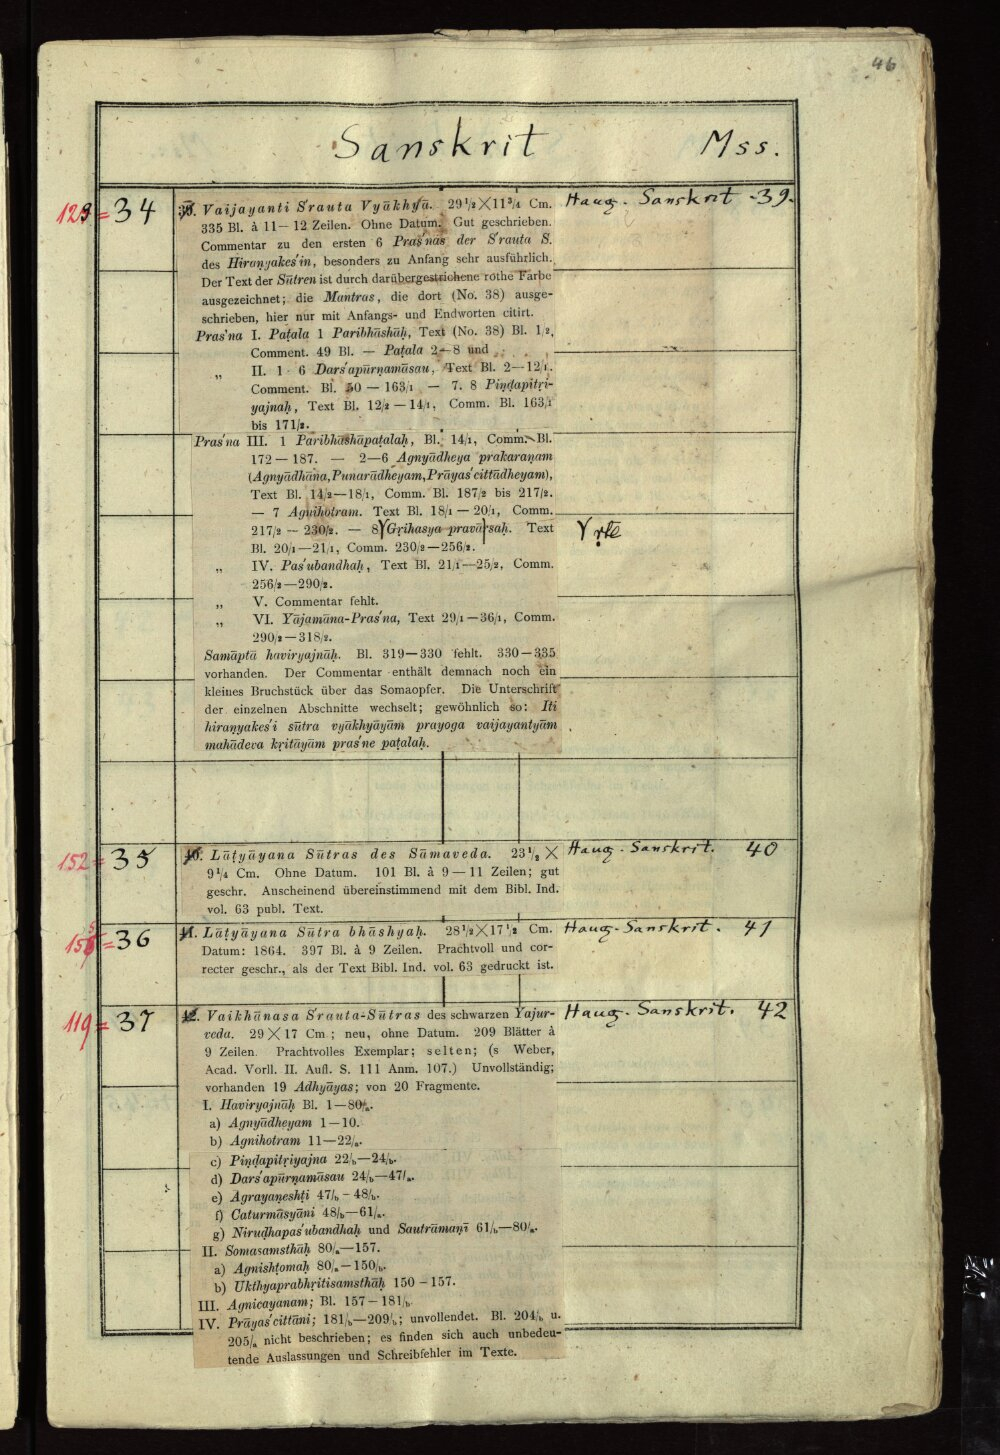 46
Sanskrit Mss.
123 = 34
39. Vaijayanti S'rauta Vyākhyā. 29½ × 11¾ Cm.
Haug. Sanskrit 39.
335 Bl. à 11—12 Zeilen. Ohne Datum. Gut geschrieben.
Commentar zu den ersten 6 Pras'nas der S'rauta S.
des Hiraṇyakes'in, besonders zu Anfang sehr ausführlich.
Der Text der Sūtren ist durch darübergestrichene rothe Farbe
ausgezeichnet; die Mantras, die dort (No. 38) ausge-
schrieben, hier nur mit Anfangs- und Endworten citirt.
Pras'na I. Paṭala 1 Paribhāshāḥ, Text (No. 38) Bl. 1/2,
Comment. 49 Bl. — Paṭala 2—8 und
„ II. 1-6 Dars'apūrṇamāsau, Text Bl. 2—12/1.
Comment. Bl. 50—163/1 — 7. 8 Piṇḍapitṛi-
yajnaḥ, Text Bl. 12/2—14/1, Comm. Bl. 163/1
bis 171/2.
Pras'na III. 1 Paribhāshāpaṭalaḥ, Bl. 14/1, Comm. Bl.
172—187. — 2—6 Agnyādheya prakaraṇam
(Agnyādhāna, Punarādheyam, Prāyas'cittādheyam),
Text Bl. 14/2—18/1, Comm. Bl. 187/2 bis 217/2.
— 7 Agnihotram. Text Bl. 18/1—20/1, Comm.
217/2—230/2. — 8 Gṛihasya pravāsaḥ. Text
Bl. 20/1—21/1, Comm. 230/2—256/2.
„ IV. Pas'ubandhaḥ, Text Bl. 21/1—25/2, Comm.
256/2—290/2.
„ V. Commentar fehlt.
„ VI. Yājamāna-Pras'na, Text 29/1—36/1, Comm.
290/2—318/2.
Samāptā haviryajnāḥ. Bl. 319—330 fehlt. 330—335
vorhanden. Der Commentar enthält demnach noch ein
kleines Bruchstück über das Somaopfer. Die Unterschrift
der einzelnen Abschnitte wechselt; gewöhnlich so: Iti
hiraṇyakes'i sūtra vyākhyāyām prayoga vaijayantyām
mahādeva kṛitāyām pras'ne paṭalaḥ.
152 = 35
40. Lāṭyāyana Sūtras des Sāmaveda. 23½ ×
Haug. Sanskrit. 40
9¼ Cm. Ohne Datum. 101 Bl. à 9—11 Zeilen; gut
geschr. Anscheinend übereinstimmend mit dem Bibl. Ind.
vol. 63 publ. Text.
= 36
41. Lāṭyāyana Sūtra bhāshyaḥ. 28½ × 17½ Cm.
Haug. Sanskrit. 41
Datum: 1864. 397 Bl. à 9 Zeilen. Prachtvoll und cor-
recter geschr., als der Text Bibl. Ind. vol. 63 gedruckt ist.
119 = 37
42. Vaikhānasa S'rauta-Sūtras des schwarzen Yajur-
Haug. Sanskrit. 42
veda. 29 × 17 Cm; neu, ohne Datum. 209 Blätter à
9 Zeilen. Prachtvolles Exemplar; selten; (s Weber,
Acad. Vorll. II. Aufl. S. 111 Anm. 107.) Unvollständig;
vorhanden 19 Adhyāyas; von 20 Fragmente.
I. Haviryajnāḥ Bl. 1—80/a.
a) Agnyādheyam 1—10.
b) Agnihotram 11—22/a.
c) Piṇḍapitṛiyajna 22/b—24/b.
d) Dars'apūrṇamāsau 24/b—47/a.
e) Agrayaṇeshṭi 47/b—48/b.
f) Caturmāsyāni 48/b—61/a.
g) Nirudhapas'ubandhaḥ und Sautrāmaṇī 61/b—80/a.
II. Somasamsthāḥ 80/a—157.
a) Agnishṭomaḥ 80/a—150/b.
b) Ukthyaprabhṛitisamsthāḥ 150—157.
III. Agnicayanam; Bl. 157—181/b.
IV. Prāyas'cittāni; 181/b—209/b; unvollendet. Bl. 204/b u.
205/a nicht beschrieben; es finden sich auch unbedeu-
tende Auslassungen und Schreibfehler im Texte.